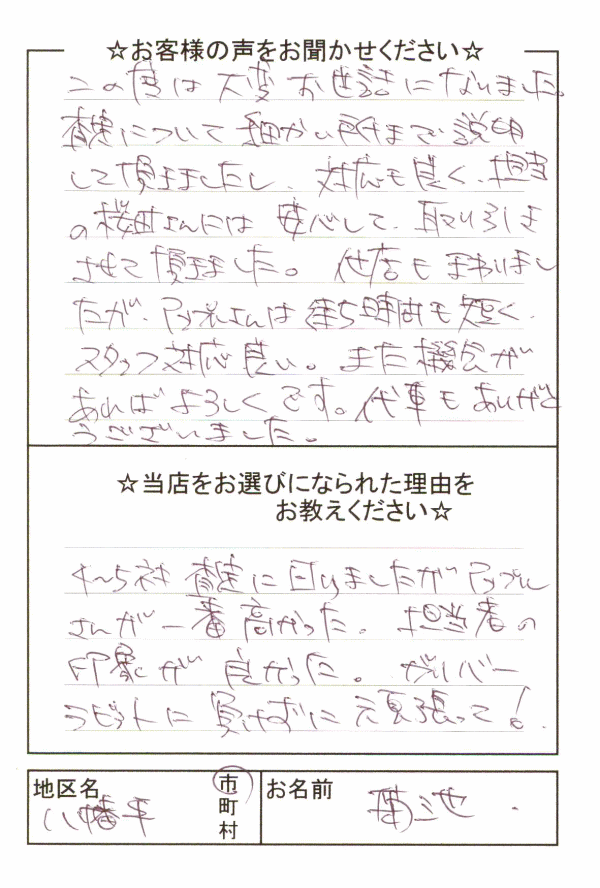 ☆お客様の声をお聞かせください☆
この度は大変お世話になりました。
査定について細かい所まで説明
して頂きましたし、対応も良く、担当
の桜田さんには安心して、取り引きは
させて頂きました。他店もまわりまし
たが、アップルさんは待ち時間も短く、
スタッフ対応良い。また機会が
あればよろしくです。代車もありがと
うございました。
☆当店をお選びになられた理由を
お教えください☆
4~5社査定に回りましたがアップル
さんが一番高かった。担当者の
印象が良かった。ガリバー
ラビットに負けずに頑張って!
地区名
八幡平
市
町
村
お名前
菊池